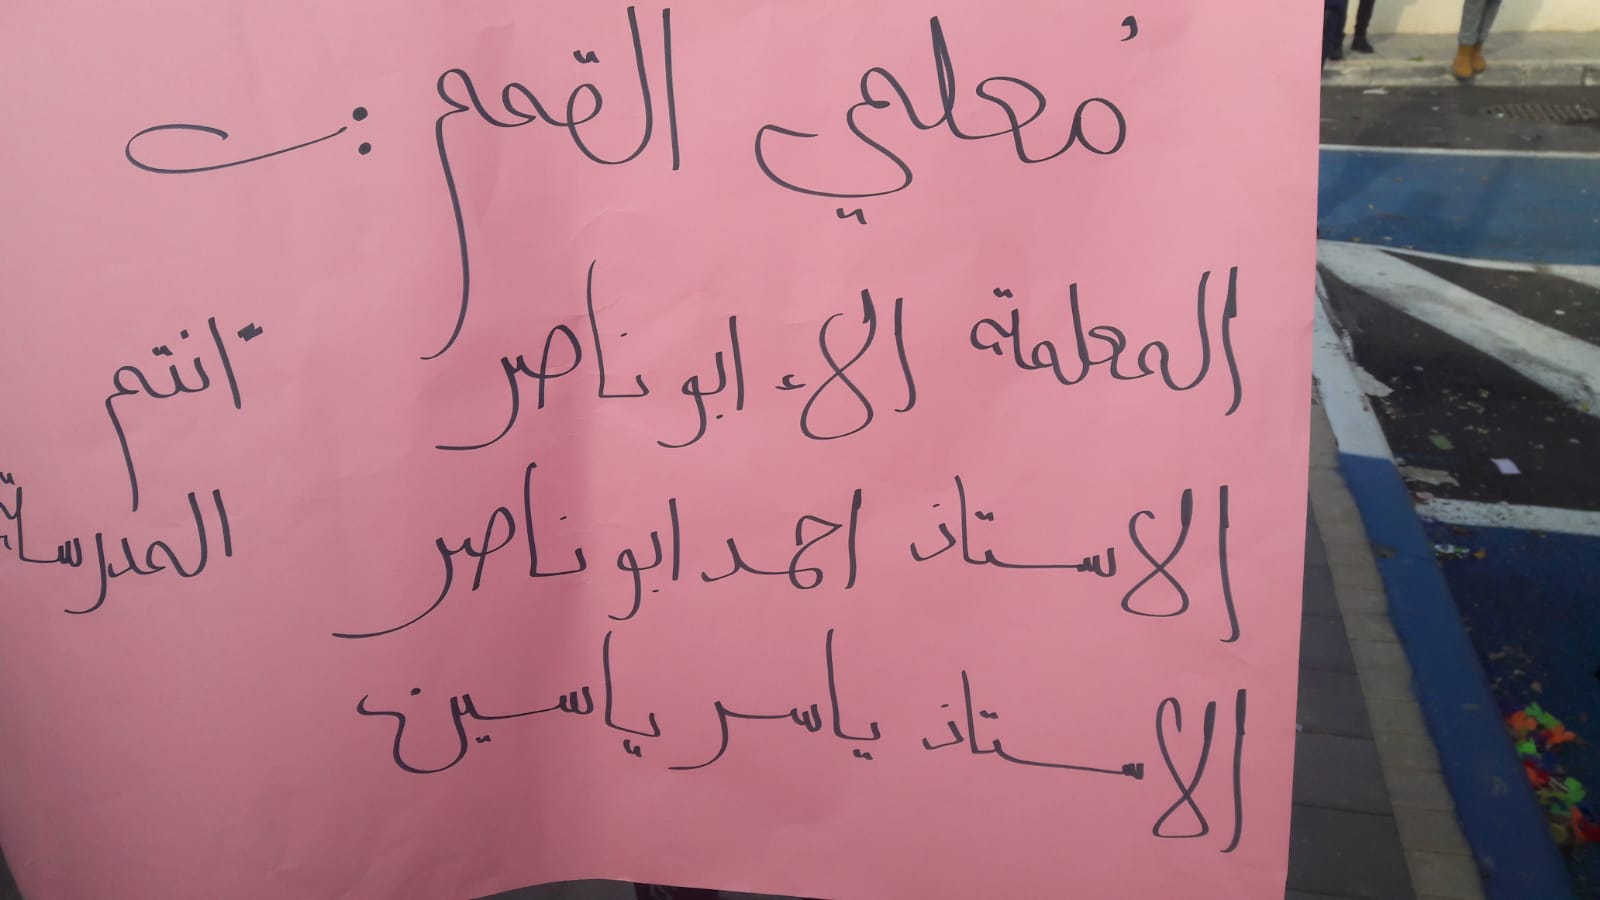 مُعلمي القمم :
المعلمة الاء ابو ناصر
الاستاذ احمد ابو ناصر
الاستاذ ياسر ياسين
- انتم
المدرسة